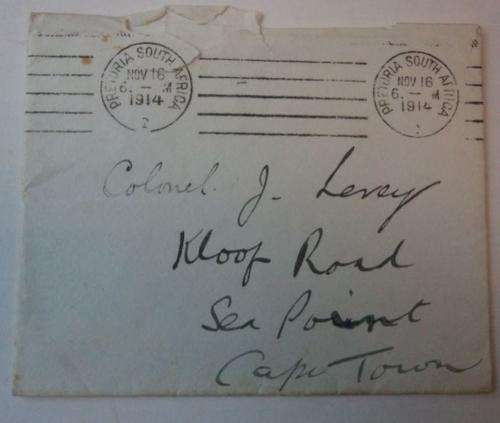 PRETORIA SOUTH AFRICA
NOV 16
6. — M
1914
2
PRETORIA SOUTH AFRICA
NOV 16
6. — M
1914
Colonel. J. Levey
Kloof Road
Sea Point
Cape Town